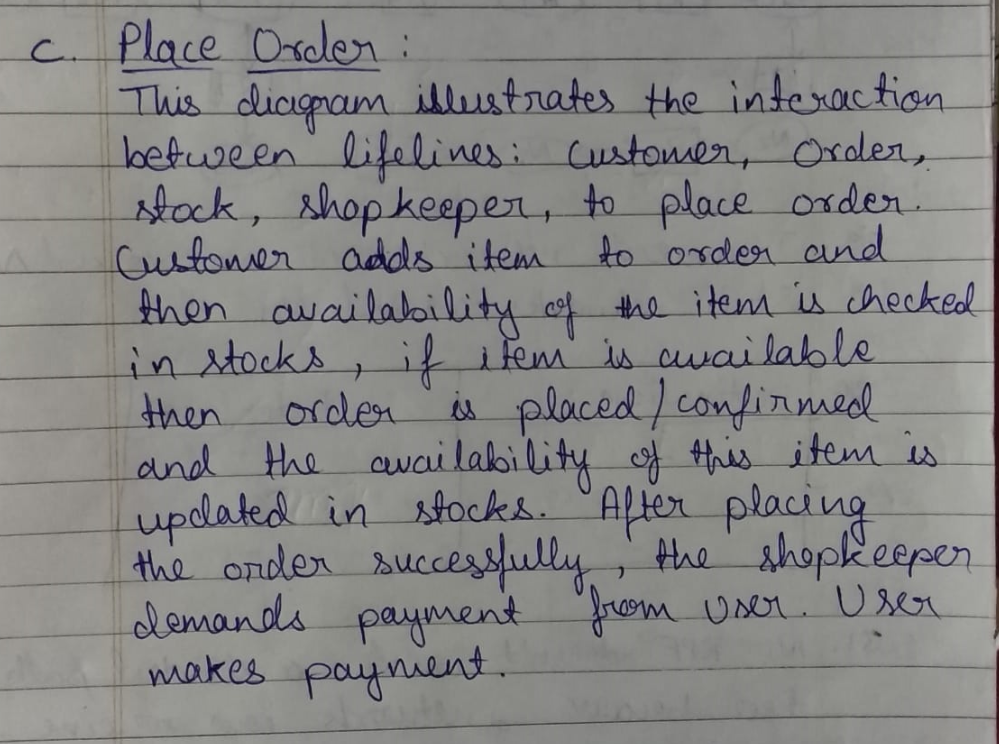 c. Place Order :
This diagram illustrates the interaction
between lifelines: Customer, Order,
stock, shopkeeper, to place order.
Customer adds item to order and
then availability of the item is checked
in stocks, if item is available
then order is placed/confirmed
and the availability of this item is
updated in stocks. After placing
the order successfully, the shopkeeper
demands payment from User. User
makes payment.